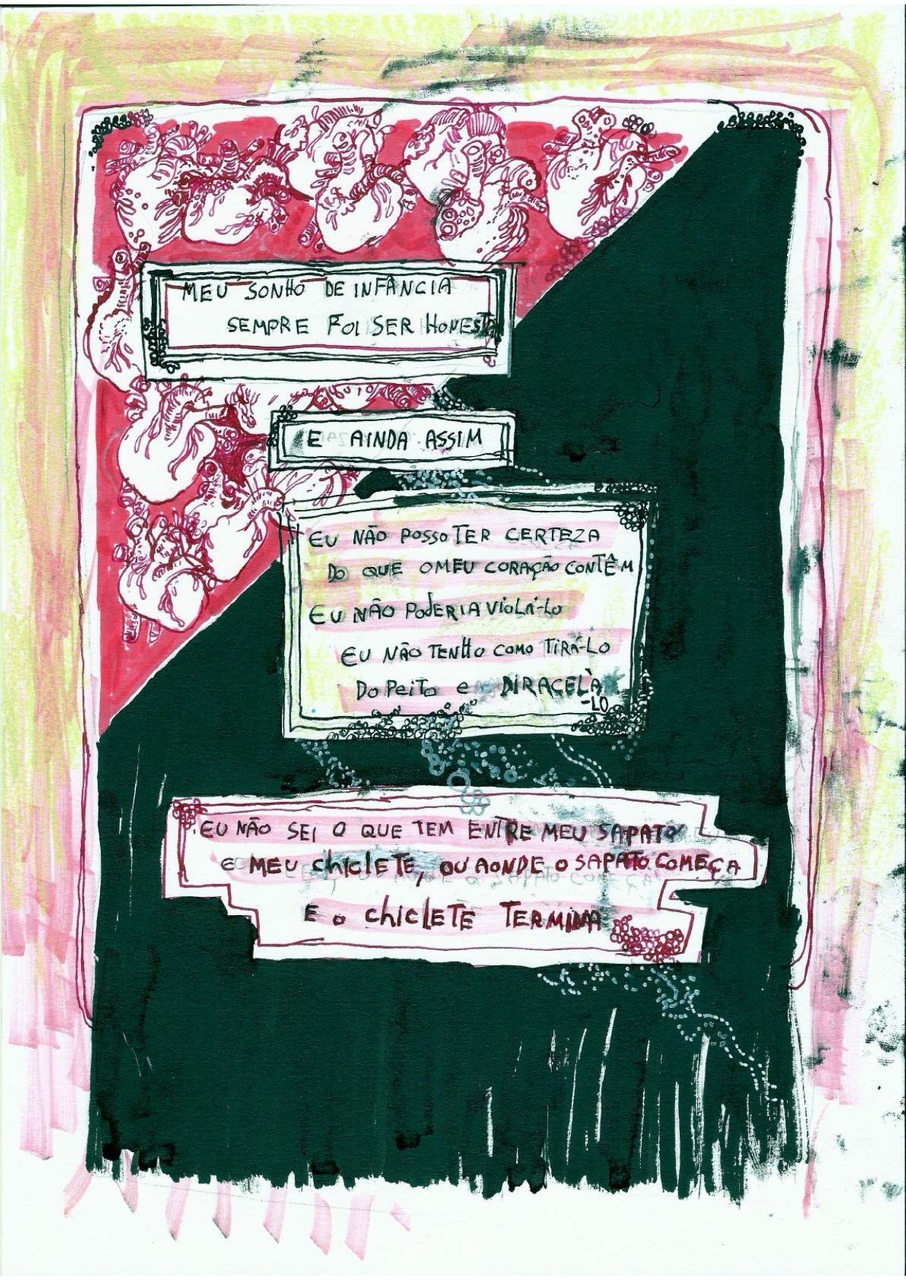 MEU SONHO DE INFÂNCIA
SEMPRE FOI SER HONESTO
E AINDA ASSIM
EU NÃO POSSO TER CERTEZA
DO QUE O MEU CORAÇÃO CONTÊM
EU NÃO PODERIA VIOLÁ-LO
EU NÃO TENHO COMO TIRÁ-LO
DO PEITO E DIRACELÀ
-LO
EU NÃO SEI O QUE TEM ENTRE MEU SAPATO
E MEU CHICLETE, OU AONDE O SAPATO COMEÇA
E O CHICLETE TERMINA